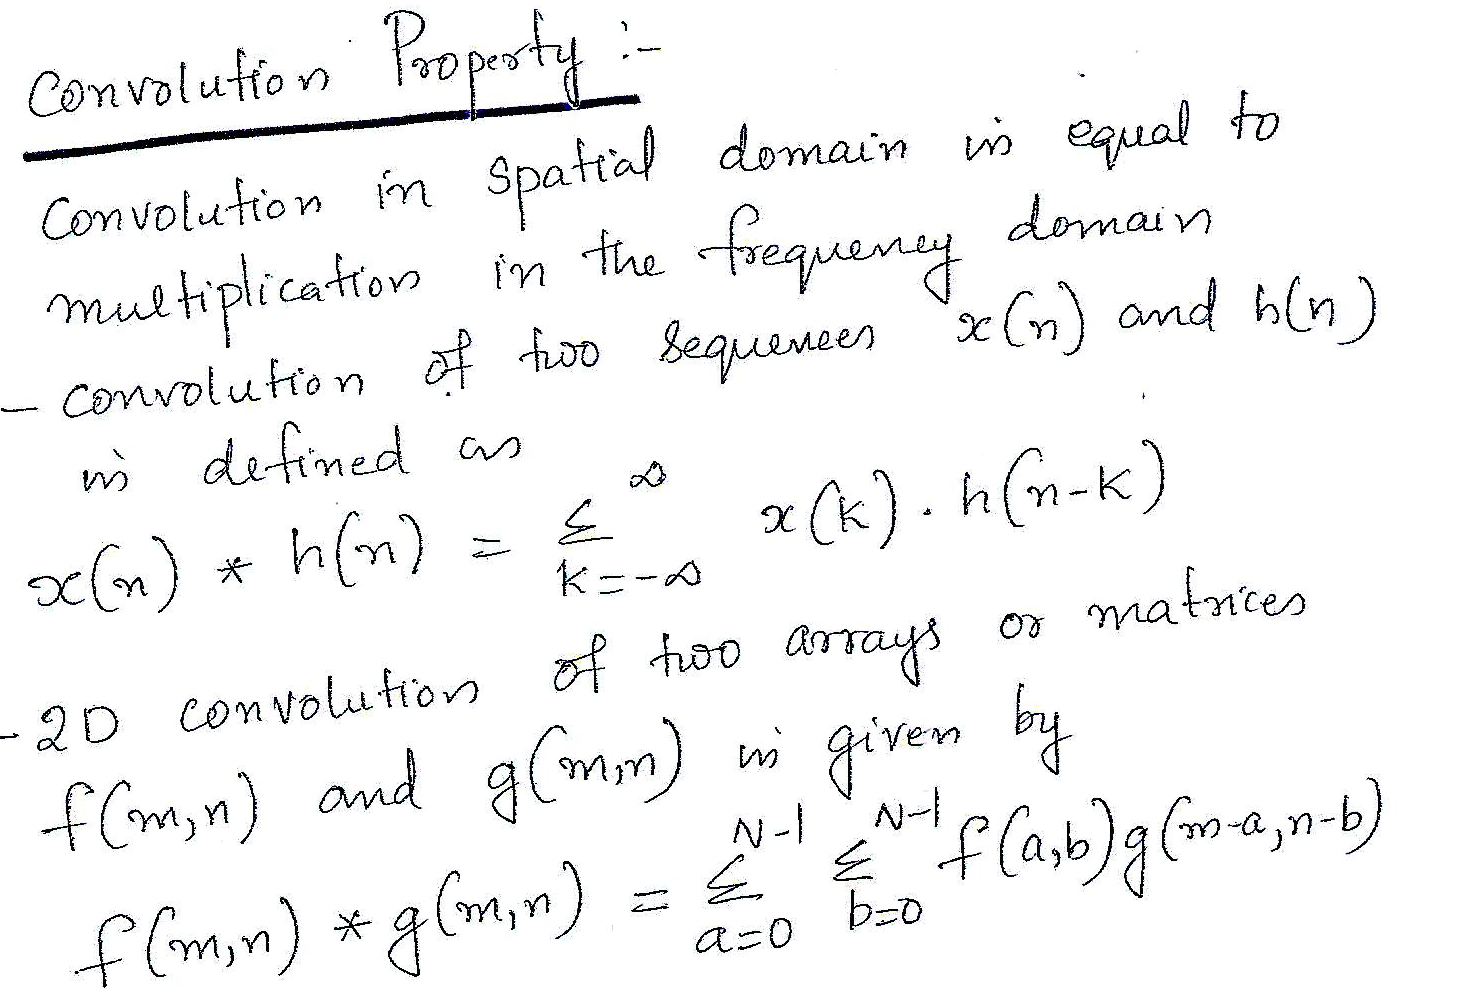 Convolution Property :-
Convolution in spatial domain is equal to
multiplication in the frequency domain
- convolution of two sequences x(n) and h(n)
is defined as
x(n) * h(n) = Σ_{k=-∞}^{∞} x(k) . h(n-k)
- 2D convolution of two arrays or matrices
f(m,n) and g(m,n) is given by
f(m,n) * g(m,n) = Σ_{a=0}^{N-1} Σ_{b=0}^{N-1} f(a,b) g(m-a,n-b)